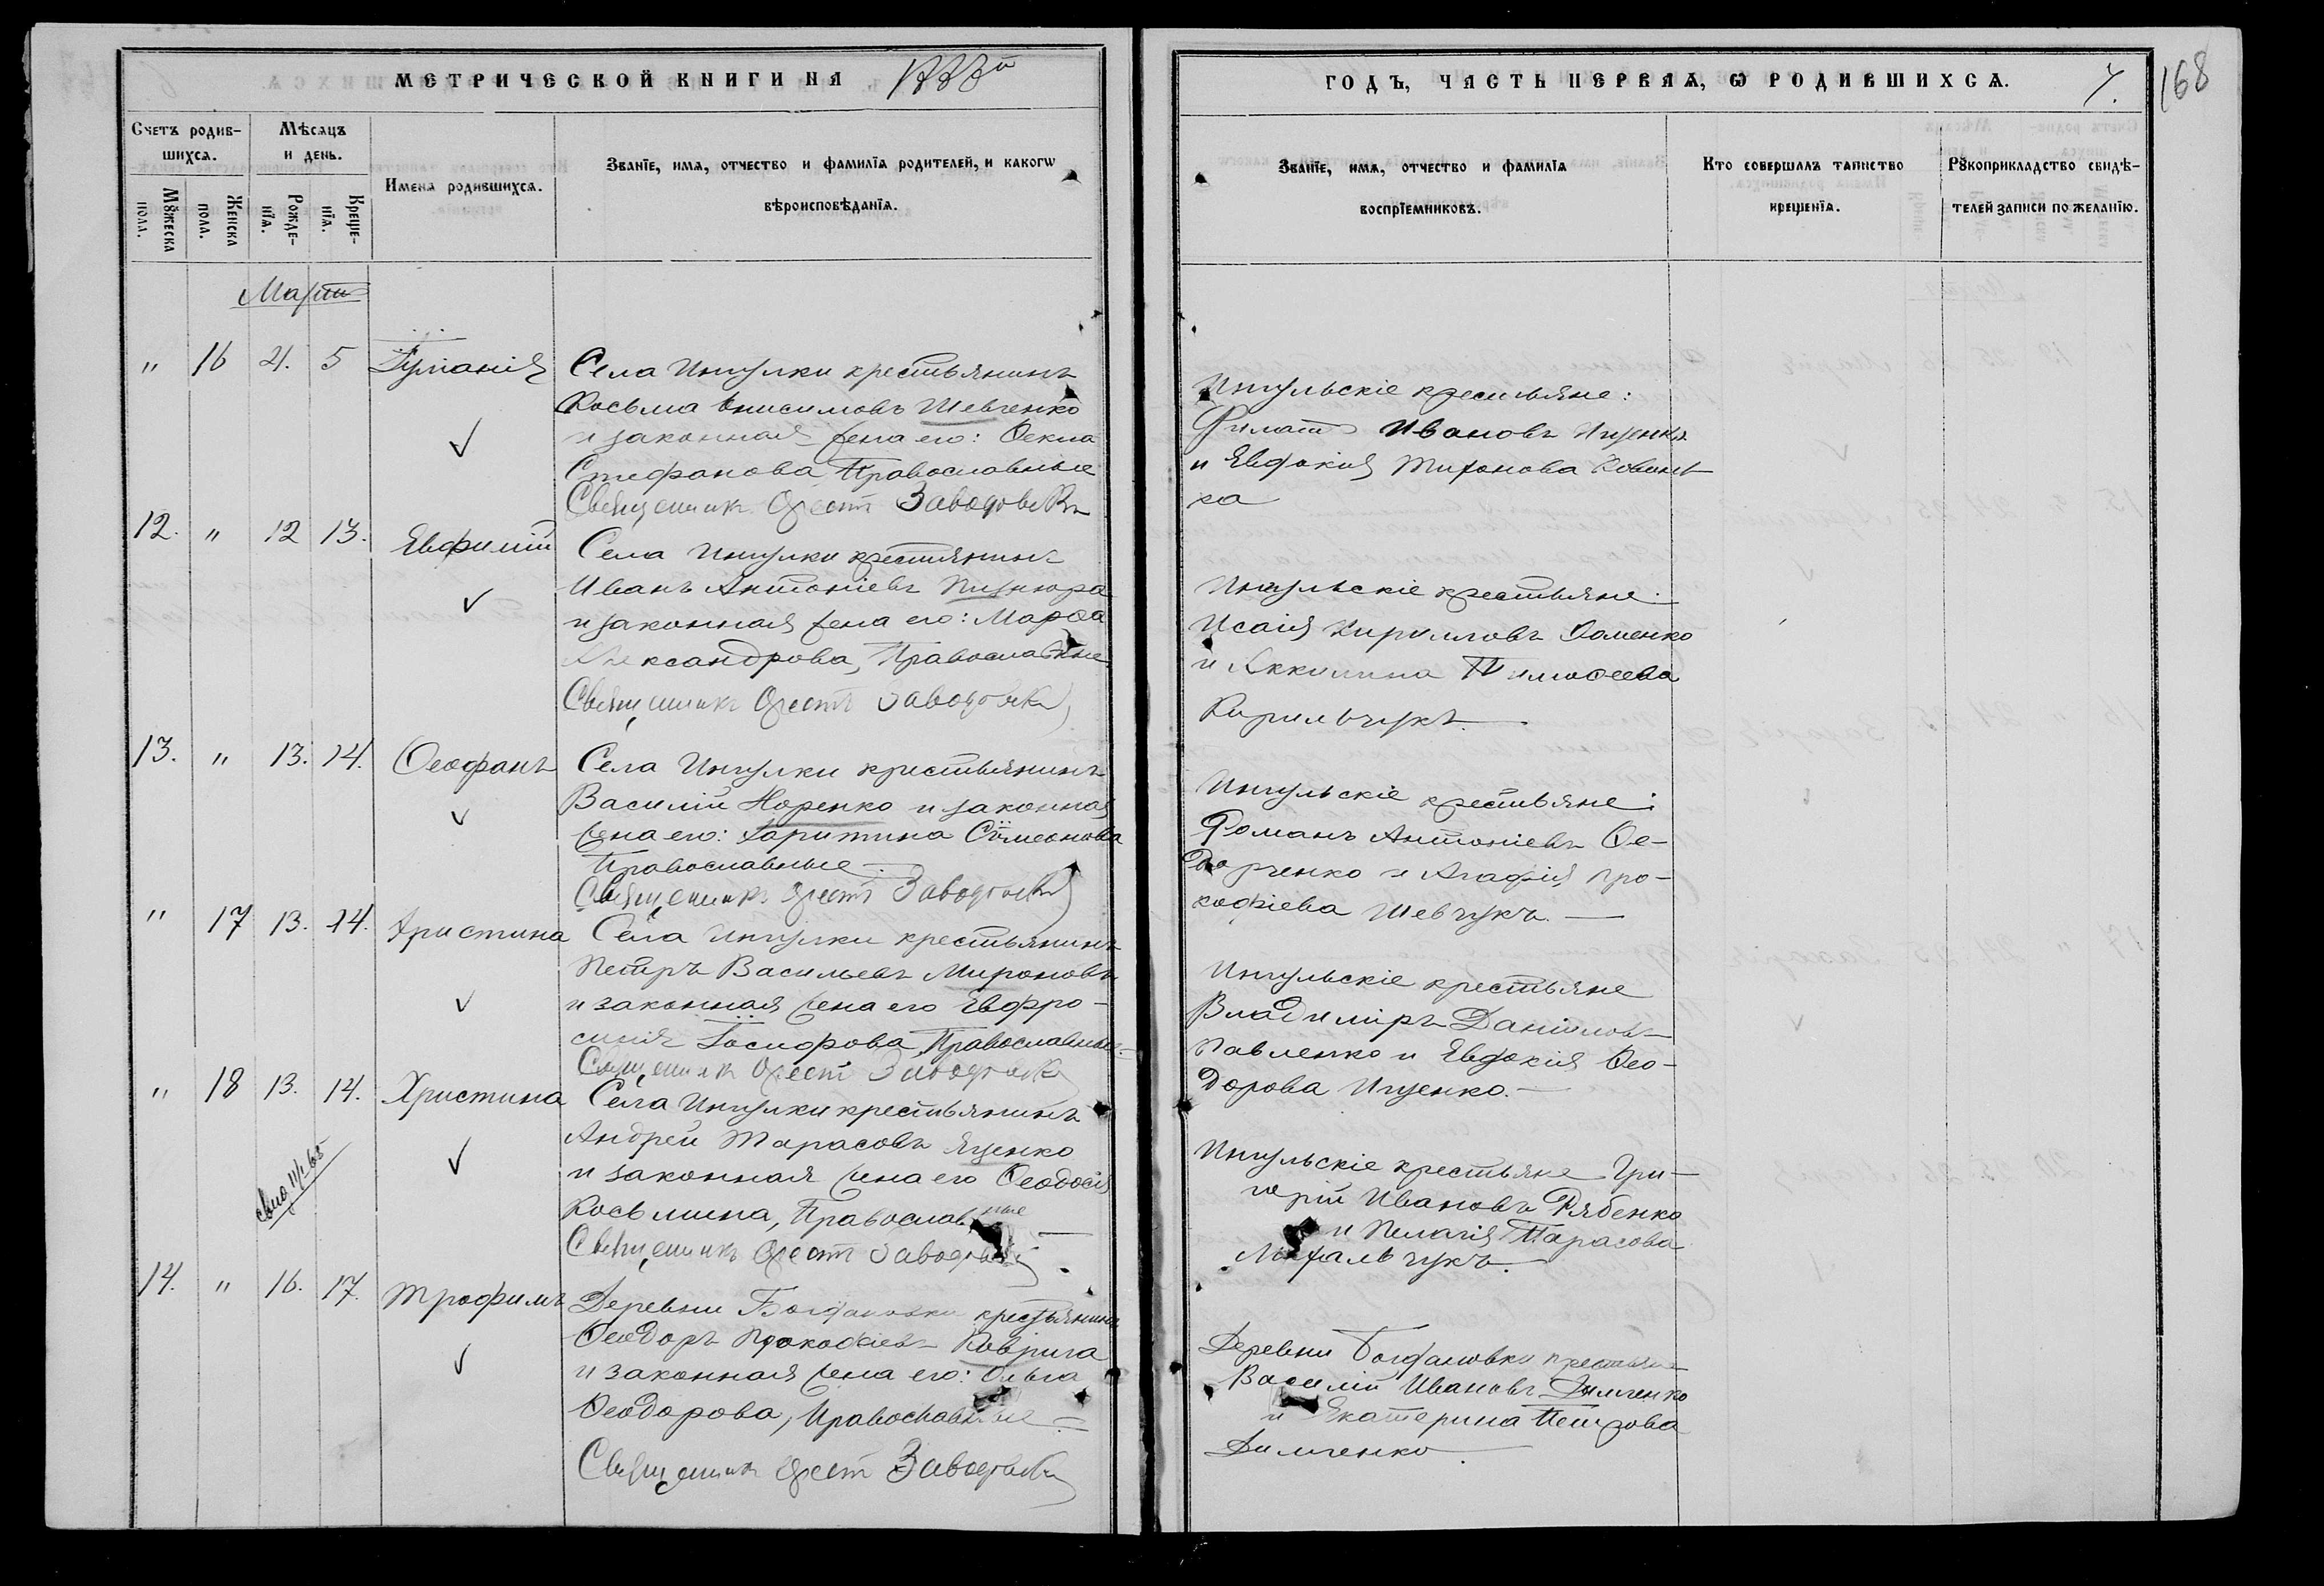 МЕТРИЧЕСКОЙ КНИГИ НА 188
ГОДЪ, ЧАСТЬ ПЕРВАЯ, Ѡ РОДИВШИХСЯ.
7.
168
Счетъ родив-
шихся.
Мѣсяцъ
и день.
Мꙋжеска
пола.
Женска
пола.
Рожде-
нїя.
Креще-
нїя.
Имена родившихся.
Званїе, имя, отчество и фамилїя родителей, и какогѡ
вѣроисповѣданїя.
Званїе, имя, отчество и фамилїя
воспрїемниковъ.
Кто совершалъ таинство
крещенїя.
Рꙋкоприкладство свидѣ-
телей записи по желанїю.
Мартъ
" 16 4. 5
Села Ингулки крестьянинъ
Косьма Онисимовъ Шевченко
и законная жена его: Ѳекла
Стефанова, Православные
Священникъ Орестъ Заводовскій
Ингульскіе крестьяне:
Филатъ Ивановъ Ищенко
и Евдокия
ка
12. " 12 13. Евфимій
Села Ингулки крестьянинъ
Иванъ Антоніевъ
и законная жена его: Марѳа
Александрова, Православные.
Священникъ Орестъ Заводовскій
Ингульскіе крестьяне:
Исаія Кирилловъ Фоменко
и Аккилина Тимоѳеева
Кирильчукъ.
13. " 13. 14. Ѳеофанъ
Села Ингулки крестьянинъ
Василій Норенко и законная
жена его: Харитина Сѵмеонова
Православные.
Священникъ Орестъ Заводовскій
Ингульскіе крестьяне:
Романъ Антоніевъ Ѳе-
дорченко и Агафія Про-
кофіева Шевчукъ.
" 17 13. 14. Христина
Села Ингулки крестьянинъ
Петръ Васильевъ Мироновъ
и законная жена его Евфро-
синія Іосифова, Православные.
Священникъ Орестъ Заводовскій
Ингульскіе крестьяне
Владиміръ Даніиловъ
Павленко и Евдокія Ѳео-
дорова Ищенко.
" 18 13. 14. Христина
Села Ингулки крестьянинъ
Андрей Тарасовъ Яценко
и законная жена его Ѳеодосія
Косьмина, Православные
Священникъ Орестъ Заводовскій
Ингульскіе крестьяне Гри-
горій Ивановъ Рябенко
и Пелагія Тарасова
Михальчукъ.
14. " 16. 17. Трофимъ
Деревни Богдановки крестьянинъ
Ѳеодоръ Прокофіевъ Коврига
и законная жена его: Ольга
Ѳеодорова, Православные
Священникъ Орестъ Заводовскій
Деревни Богдановки крестьяне
Василій Ивановъ Димченко
и Екатерина Петрова
Димченко.